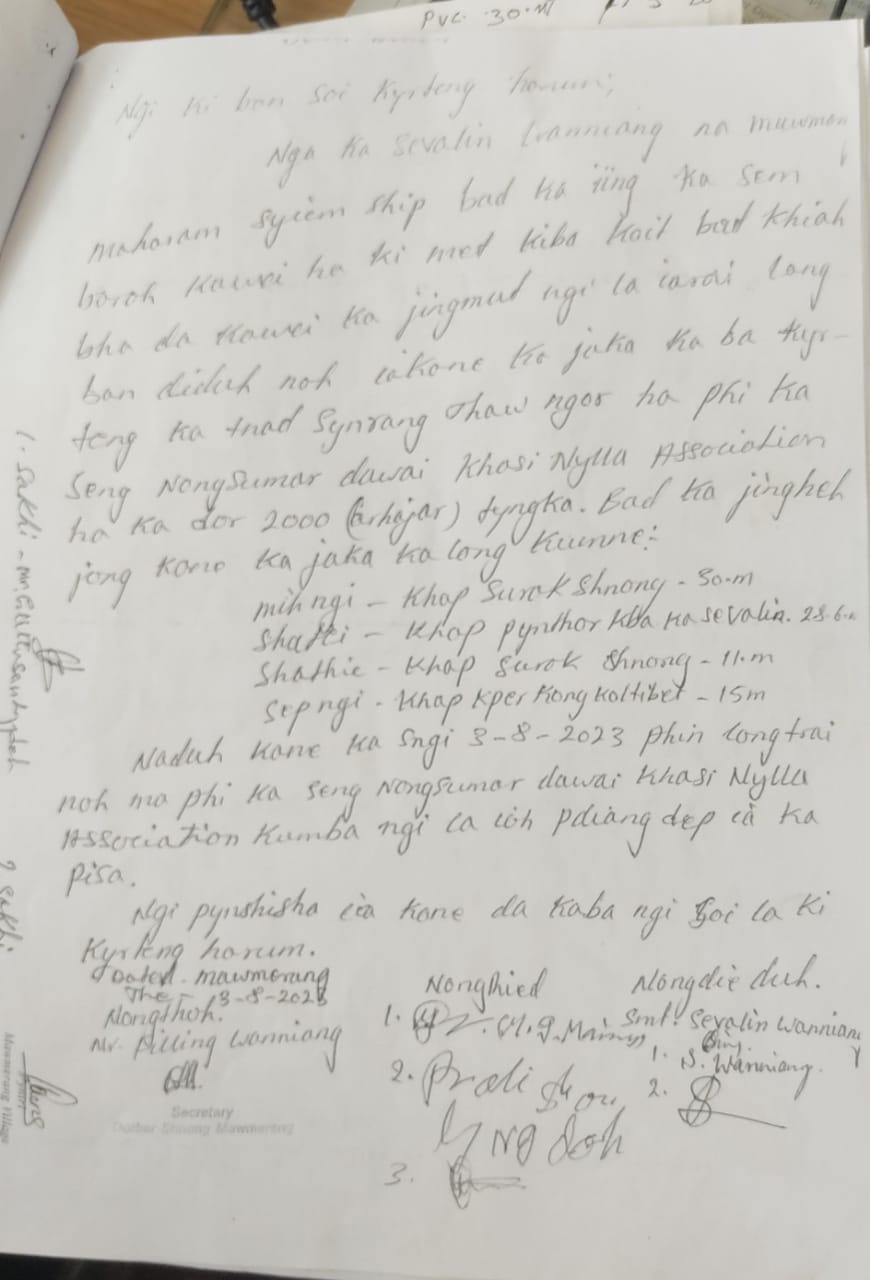 PVC 30.M
Ngi ki ban soi kyrteng harum;
Nga ka Sevalin Wanniang na mawmen
maharam syiem ship bad ka iing ka sem
baroh kawei ha ki met kiba koit bad khiah
bha da kawei ka jingmut ngi la iarai lang
ban dieduh noh iakane ka jaka ka ba kyr-
teng ka tnad synrang thaw ngor ha phi ka
Seng Nongsumar dawai Khasi Nylla Association
ha ka dor 2000 (arhajar) tyngka. Bad ka jingheh
jong kane ka jaka ka long kumne:-
mihngi - Khap Surok Shnong - 30.m
Shatei - Khap pynthor kba ka sevalin. 28.6.m
Shathie - Khap Surok Shnong - 11.m
Sepngi - Khap Kper Kong Koltibet - 15m
Naduh kane ka Sngi 3-8-2023 phin long trai
noh ma phi ka seng Nongsumar dawai Khasi Nylla
Association kumba ngi la ioh pdiang dep ia ka
pisa.
Ngi pynshisha ia kane da kaba ngi Soi la ki
Kyrteng harum.
Dated. mawmerang
The - 3-8-2023
Nongthoh.
Mr. Pilling Wanniang
Secretary
Dorbar Shnong Mawmerang
Nongthied
1.
2.
3.
Nongdie duh.
Smt. Sevalin Wanniang
1. S. Wanniang.
2.
1. Sakhi - Mr.
2 Sakhi
Mawmerang Village